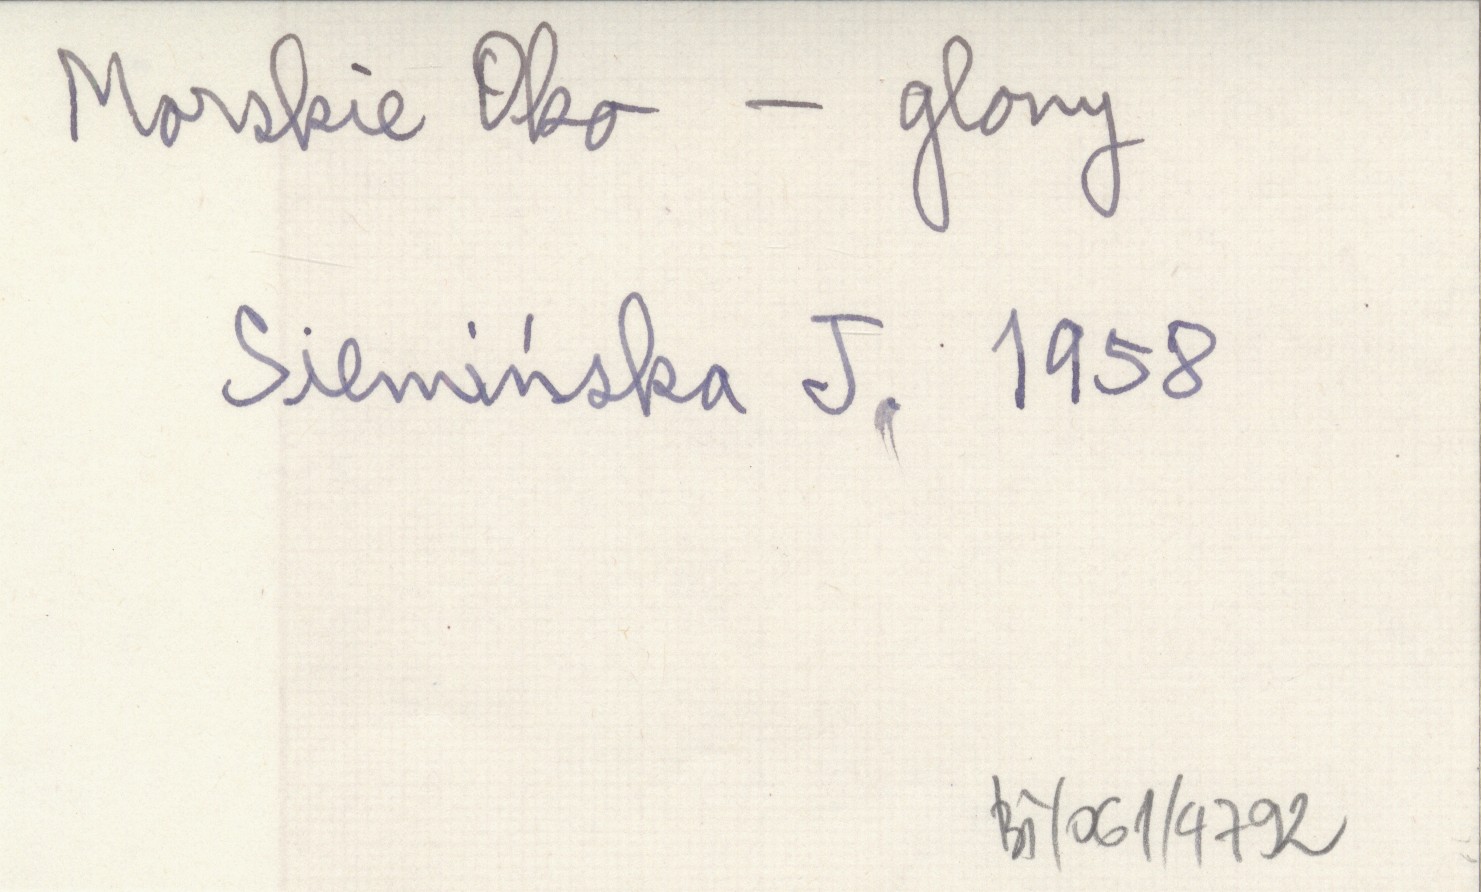 Morskie Oko – glony
Siemińska J. 1958
Bi/061/4792